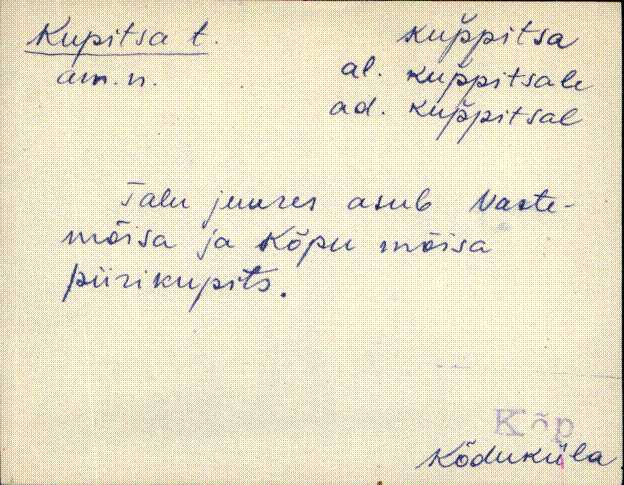 Kupitsa t. kup̆pitsa
am. n. al. kup̆pitsale
ad. kup̆pitsal
Talu juures asub Vaste-
mõisa ja Kõpu mõisa
piirikupits.
Kõp
Kõduküla